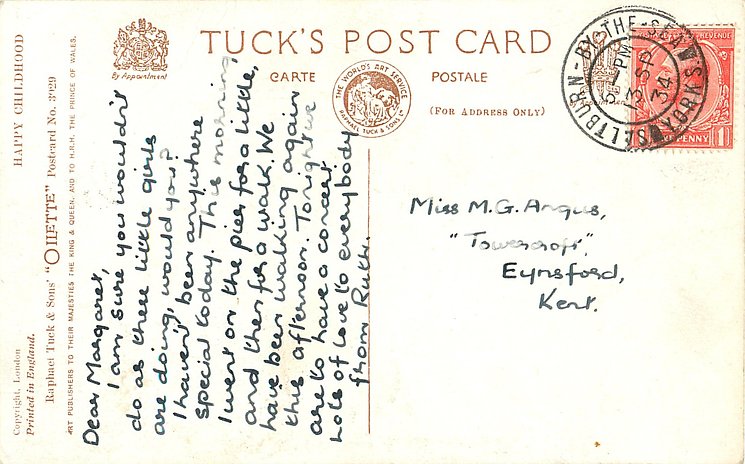 HAPPY CHILDHOOD
Raphael Tuck & Sons' "OILETTE" Postcard No. 3929
ART PUBLISHERS TO THEIR MAJESTIES THE KING & QUEEN, AND TO H.R.H. THE PRINCE OF WALES.
Copyright, London
Printed in England.
By Appointment
TUCK'S POST CARD
CARTE POSTALE
(FOR ADDRESS ONLY)
THE WORLD'S ART SERVICE
RAPHAEL TUCK & SONS LTD
SALTBURN-BY-THE-SEA
YORKS
PM
3 SP
34
REVENUE
ONE PENNY
1
Dear Margaret,
I am sure you wouldn't
do as these little girls
are doing, would you?
I haven't been anywhere
special today. This morning
I went on the pier for a little,
and then for a walk. We
have been walking again
this afternoon. Tonight we
are to have a concert.
Lots of love to everybody
from Ruth.
Miss M.G. Angus,
"Towercroft",
Eynsford,
Kent.